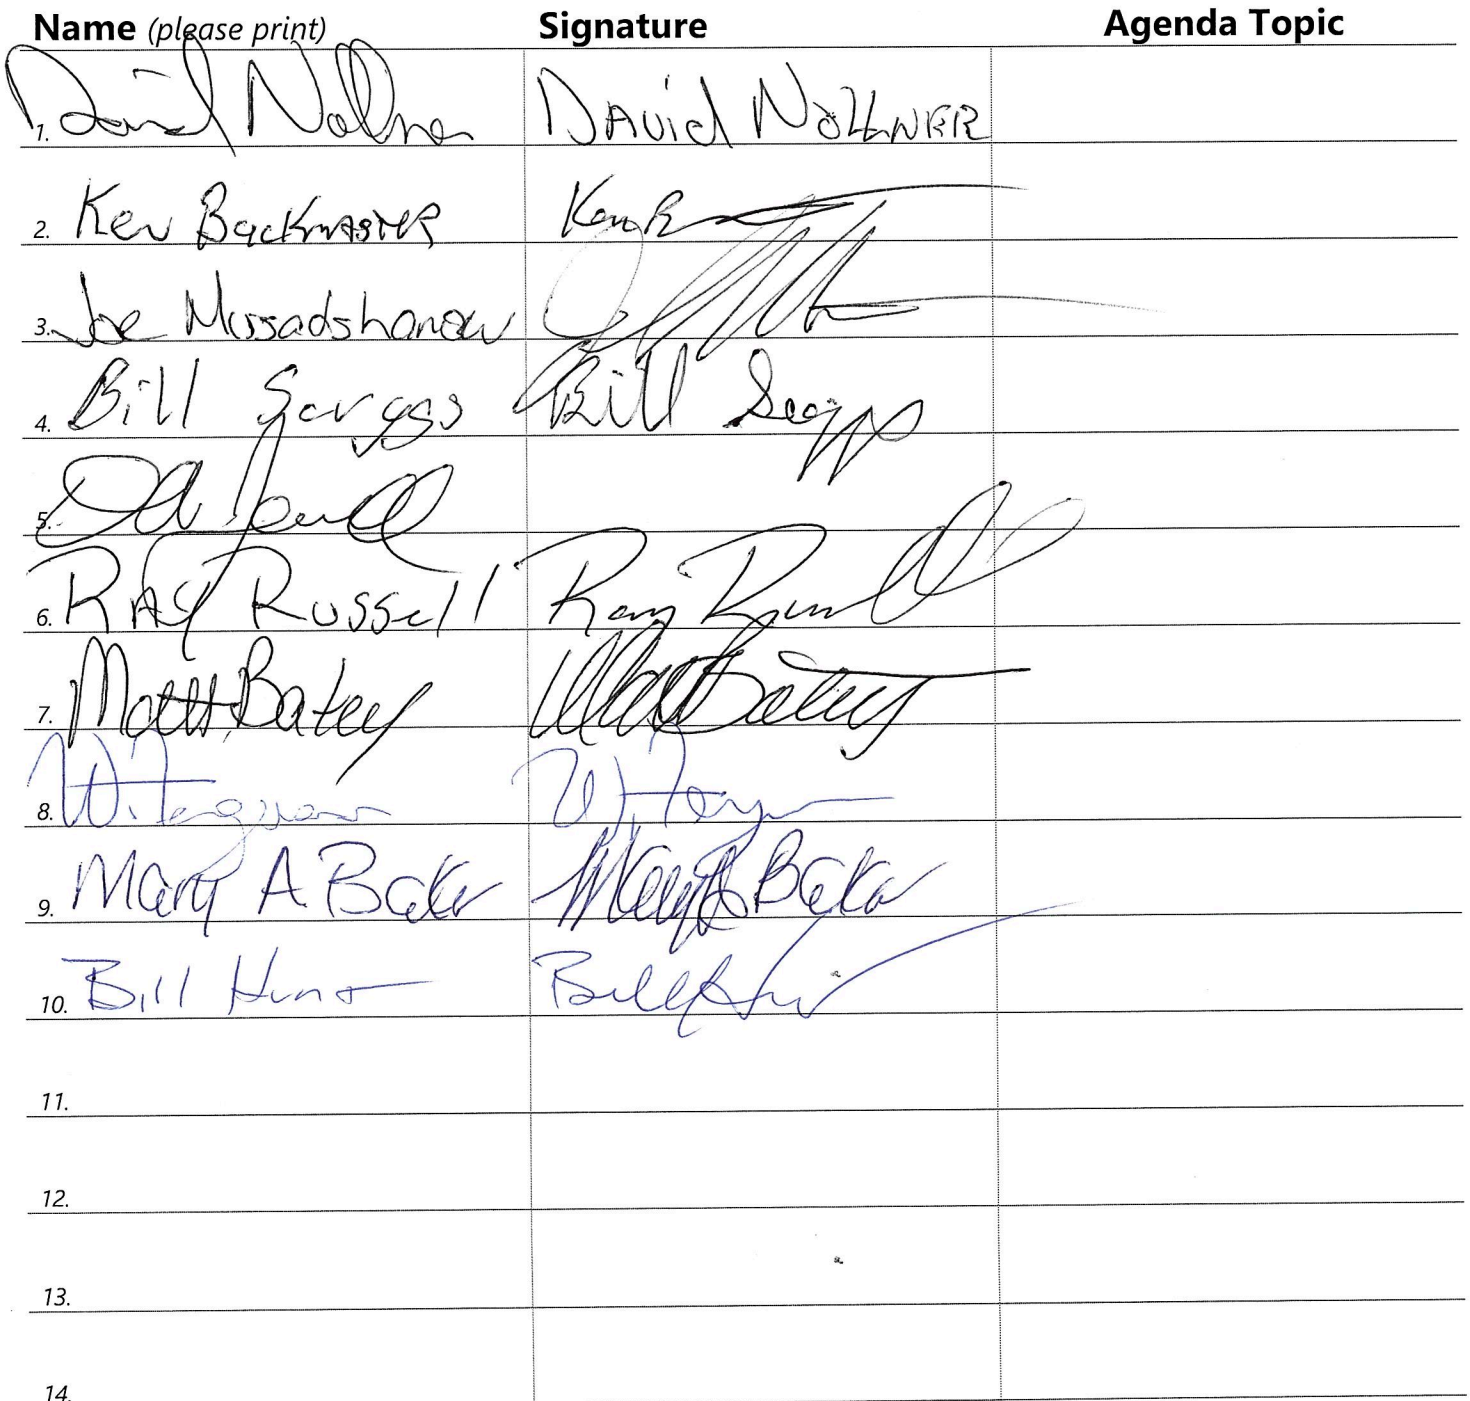 Name (please print) Signature Agenda Topic
1. David Nollner DAVID NOLLNER
2. Ken Backmaster Ken B
3. Joe Mussadshanow
4. Bill Scrggs Bill Scaggs
5.
6. RAY RUSSell Ray Russell
7. Matt Batey Matt Batey
8. W. Ferguson W. Ferguson
9. Mary A Baker Mary A Baker
10. Bill Hunt Bill Hunt
11.
12.
13.
14.